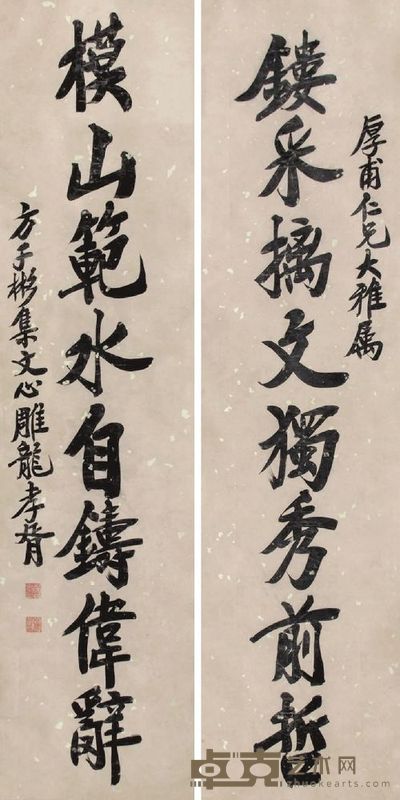 厚甫仁兄大雅属
鏤采摛文獨秀前哲
模山範水自鑄偉辭
方子彬集文心雕龍孝胥
卓克艺术网
zhuokearts.com